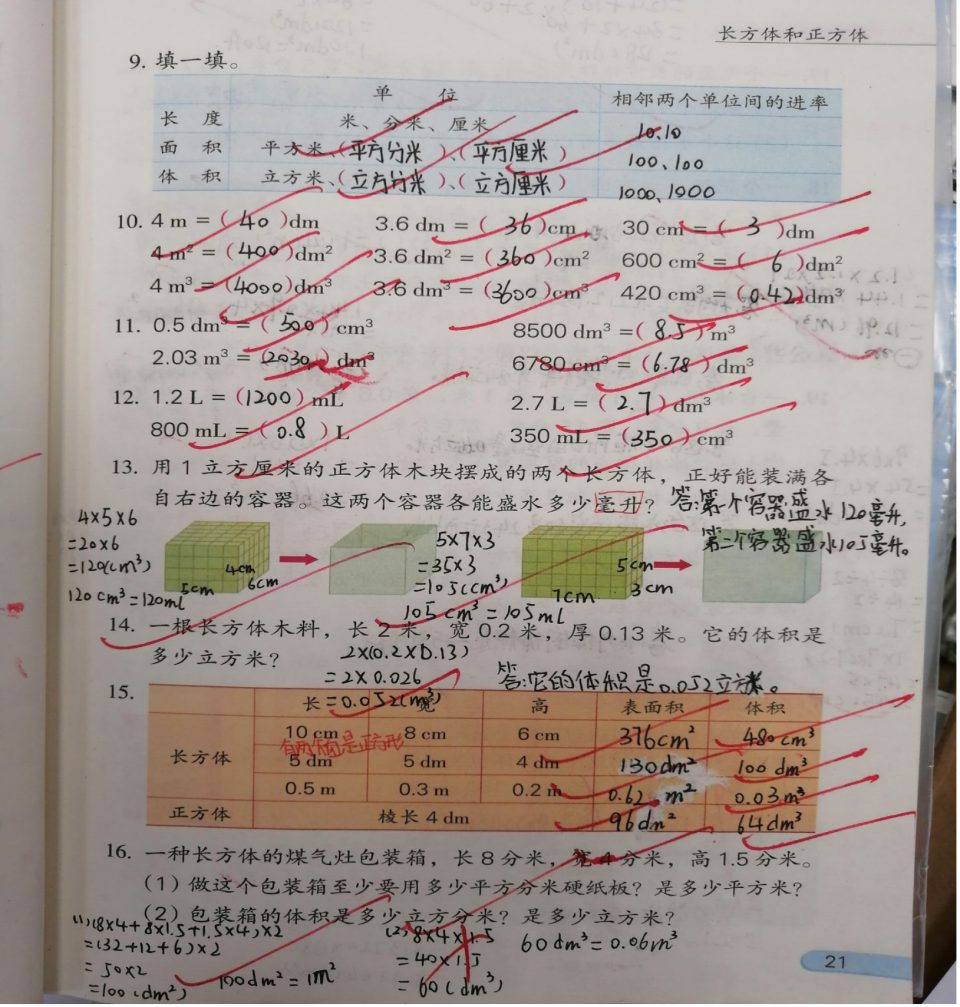 长方体和正方体
9. 填一填。
单 位 相邻两个单位间的进率
长 度 米、分米、厘米 10、10
面 积 平方米、(平方分米)、(平方厘米) 100、100
体 积 立方米、(立方分米)、(立方厘米) 1000、1000
10. 4 m = ( 40 )dm 3.6 dm = ( 36 )cm 30 cm = ( 3 )dm
4 m² = (400)dm² 3.6 dm² = (360)cm² 600 cm² = ( 6 )dm²
4 m³ = (4000)dm³ 3.6 dm³ = (3600)cm³ 420 cm³ = (0.42)dm³
11. 0.5 dm³ = ( 500 ) cm³ 8500 dm³ =( 8.5 ) m³
2.03 m³ = (2030) dm³ 6780 cm³ = (6.78) dm³
12. 1.2 L = (1200) mL 2.7 L = ( 2.7 ) dm³
800 mL = ( 0.8 ) L 350 mL = (350) cm³
13. 用 1 立方厘米的正方体木块摆成的两个长方体，正好能装满各
自右边的容器。这两个容器各能盛水多少毫升？
答:第一个容器盛水120毫升,
第二个容器盛水105毫升。
4×5×6
=20×6
=120(cm³)
120cm³=120ml
4cm
5cm 6cm
5×7×3
=35×3
=105(cm³)
105cm³=105ml
5cm
7cm 3cm
14. 一根长方体木料，长 2 米，宽 0.2 米，厚 0.13 米。它的体积是
多少立方米？
2×(0.2×0.13)
=2×0.026
=0.052(m³)
答:它的体积是0.052立方米。
15.
长 宽 高 表面积 体积
长方体 10 cm 8 cm 6 cm 376cm² 480cm³
有两个面是正方形
5 dm 5 dm 4 dm 130dm² 100dm³
0.5 m 0.3 m 0.2 m 0.62 m² 0.03m³
正方体 棱长 4 dm 96dm² 64dm³
16. 一种长方体的煤气灶包装箱，长 8 分米，宽 4 分米，高 1.5 分米。
（1）做这个包装箱至少要用多少平方分米硬纸板？是多少平方米？
（2）包装箱的体积是多少立方分米？是多少立方米？
(1)(8×4+8×1.5+1.5×4)×2
=(32+12+6)×2
=50×2
=100(dm²)
100dm²=1m²
(2)8×4×1.5
=40×1.5
=60(dm³)
60dm³=0.06m³
21